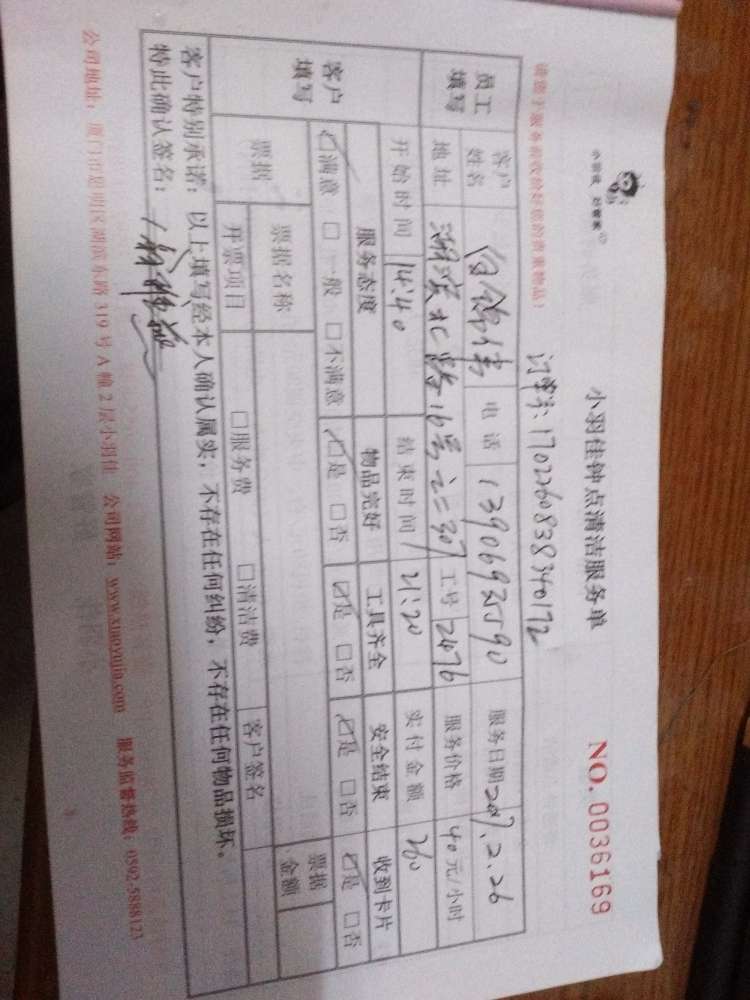 小羽佳 好管家
小羽佳钟点清洁服务单
NO. 0036169
请您于服务前收拾好您的贵重物品!
订单号: 1702260838340172
员工填写
客户姓名
电话 13906925590
服务日期 2017.2.26
地址 湖滨北路16号之二307
工号 2476
服务价格 40元/小时
开始时间 14:40
结束时间 21:20
实付金额 260
客户填写
服务态度 物品完好 工具齐全 安全结束 收到卡片
☑满意 □一般 □不满意 ☑是 □否 ☑是 □否 ☑是 □否 ☑是 □否
票据 票据名称 票据金额
开票项目 □服务费 □清洁费 客户签名
客户特别承诺: 以上填写经本人确认属实, 不存在任何纠纷, 不存在任何物品损坏。
特此确认签名:
公司地址: 厦门市思明区湖滨东路319号A幢2层小羽佳 公司网站: www.xiaoyujia.com 服务监督热线: 0592-5888123